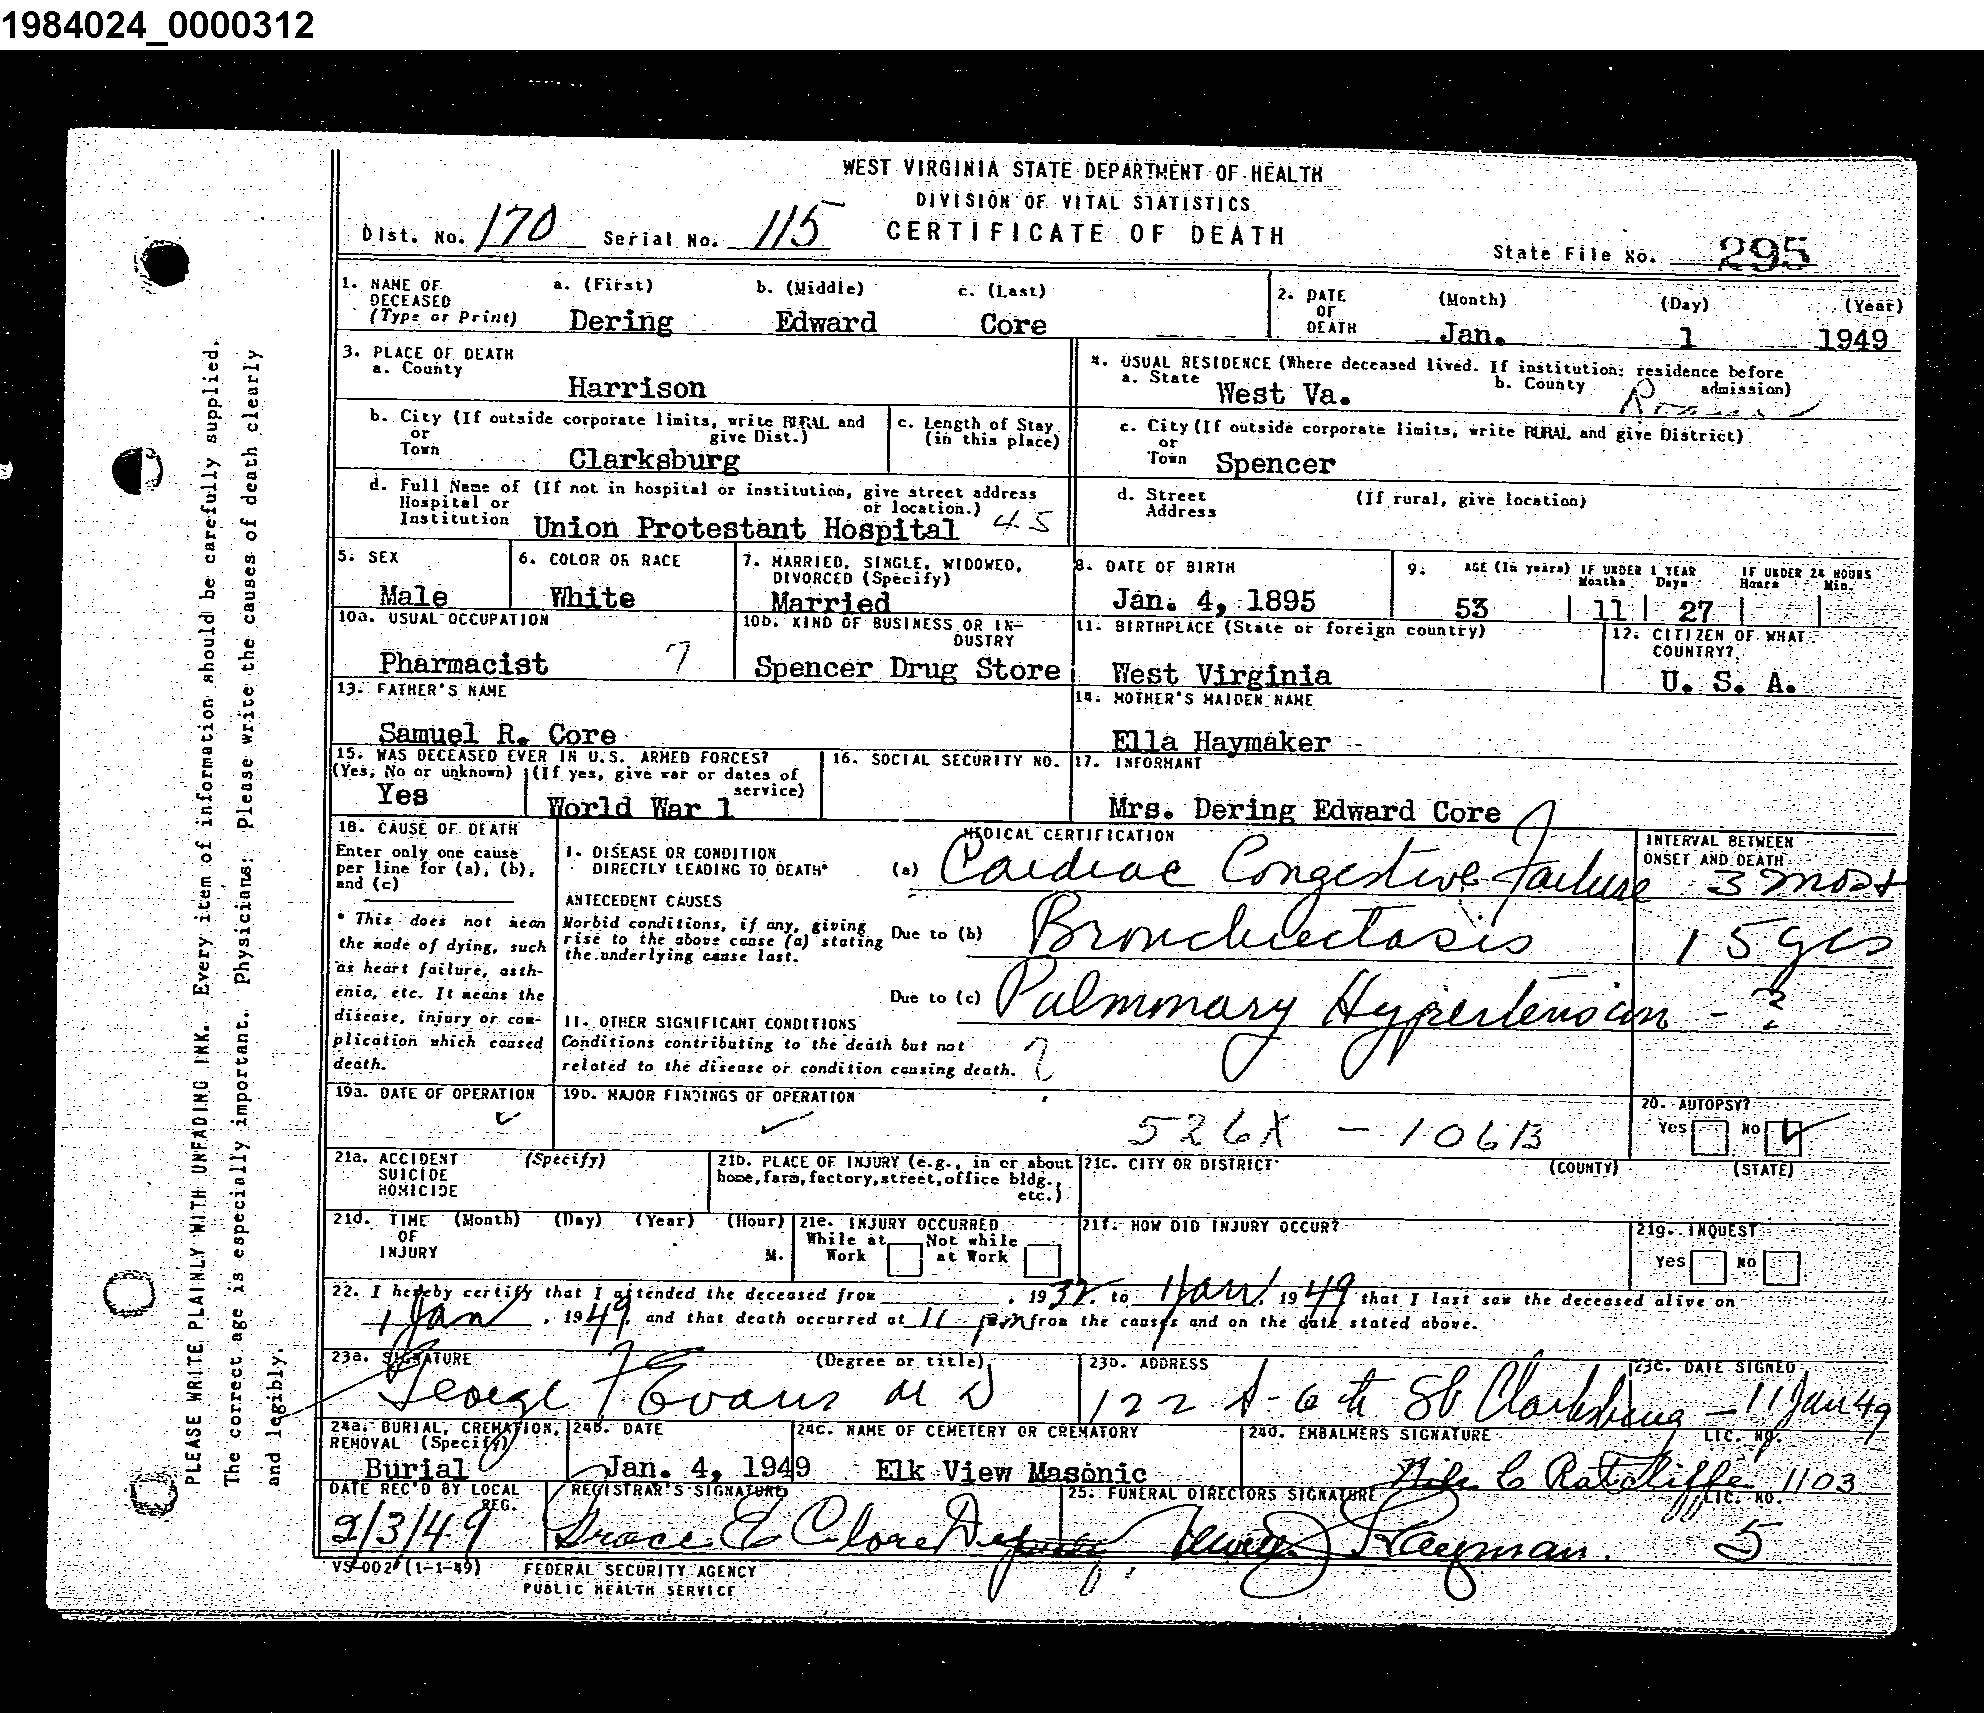 1984024_0000312
WEST VIRGINIA STATE DEPARTMENT OF HEALTH
DIVISION OF VITAL STATISTICS
CERTIFICATE OF DEATH
Dist. No. 170 Serial No. 115
State File No. 295
1. NAME OF DECEASED (Type or Print) a. (First) b. (Middle) c. (Last)
Dering Edward Core
2. DATE OF DEATH (Month) (Day) (Year)
Jan. 1 1949
3. PLACE OF DEATH
a. County
Harrison
b. City (If outside corporate limits, write RURAL and give Dist.)
or Town
Clarksburg
c. Length of Stay (in this place)
d. Full Name of Hospital or Institution (If not in hospital or institution, give street address or location.)
Union Protestant Hospital 45
4. USUAL RESIDENCE (Where deceased lived. If institution: residence before admission)
a. State West Va. b. County
c. City (If outside corporate limits, write RURAL and give District)
or Town Spencer
d. Street Address (If rural, give location)
5. SEX
Male
6. COLOR OR RACE
White
7. MARRIED, SINGLE, WIDOWED, DIVORCED (Specify)
Married
8. DATE OF BIRTH
Jan. 4, 1895
9. AGE (In years) IF UNDER 1 YEAR Months Days IF UNDER 24 HOURS Hours Min.
53 11 27
10a. USUAL OCCUPATION
Pharmacist 7
10b. KIND OF BUSINESS OR INDUSTRY
Spencer Drug Store
11. BIRTHPLACE (State or foreign country)
West Virginia
12. CITIZEN OF WHAT COUNTRY?
U. S. A.
13. FATHER'S NAME
Samuel R. Core
14. MOTHER'S MAIDEN NAME
Ella Haymaker
15. WAS DECEASED EVER IN U.S. ARMED FORCES?
(Yes, No or unknown) (If yes, give war or dates of service)
Yes World War 1
16. SOCIAL SECURITY NO.
17. INFORMANT
Mrs. Dering Edward Core
18. CAUSE OF DEATH
Enter only one cause per line for (a), (b), and (c)
* This does not mean the mode of dying, such as heart failure, asthenia, etc. It means the disease, injury or complication which caused death.
MEDICAL CERTIFICATION
INTERVAL BETWEEN ONSET AND DEATH
I. DISEASE OR CONDITION DIRECTLY LEADING TO DEATH*
(a) Cardiac Congestive Failure 3 mos +
ANTECEDENT CAUSES
Morbid conditions, if any, giving rise to the above cause (a) stating the underlying cause last.
Due to (b) Bronchiectasis 15 yrs
Due to (c) Pulmonary Hypertension - ?
II. OTHER SIGNIFICANT CONDITIONS
Conditions contributing to the death but not related to the disease or condition causing death. ?
19a. DATE OF OPERATION
19b. MAJOR FINDINGS OF OPERATION
526X - 106B
20. AUTOPSY?
Yes No
21a. ACCIDENT SUICIDE HOMICIDE (Specify)
21b. PLACE OF INJURY (e.g., in or about home, farm, factory, street, office bldg., etc.)
21c. CITY OR DISTRICT (COUNTY) (STATE)
21d. TIME OF INJURY (Month) (Day) (Year) (Hour) M.
21e. INJURY OCCURRED
While at Work Not while at Work
21f. HOW DID INJURY OCCUR?
21g. INQUEST
Yes No
22. I hereby certify that I attended the deceased from , 1932, to 1 Jan, 1949 that I last saw the deceased alive on
1 Jan, 1949, and that death occurred at 11 pm from the causes and on the date stated above.
23a. SIGNATURE (Degree or title)
George F Evans M D
23b. ADDRESS
122 S- 6th St Clarksburg
23c. DATE SIGNED
11 Jan 49
24a. BURIAL, CREMATION, REMOVAL (Specify)
Burial
24b. DATE
Jan. 4, 1949
24c. NAME OF CEMETERY OR CREMATORY
Elk View Masonic
24d. EMBALMERS SIGNATURE LIC. NO.
C Ratcliffe 1103
DATE REC'D BY LOCAL REG.
2/3/49
REGISTRAR'S SIGNATURE
Grace E Clore Deputy
25. FUNERAL DIRECTORS SIGNATURE LIC. NO.
5
VS-002 (1-1-49) FEDERAL SECURITY AGENCY
PUBLIC HEALTH SERVICE
PLEASE WRITE PLAINLY WITH UNFADING INK. Every item of information should be carefully supplied.
The correct age is especially important. Physicians: Please write the causes of death clearly
and legibly.